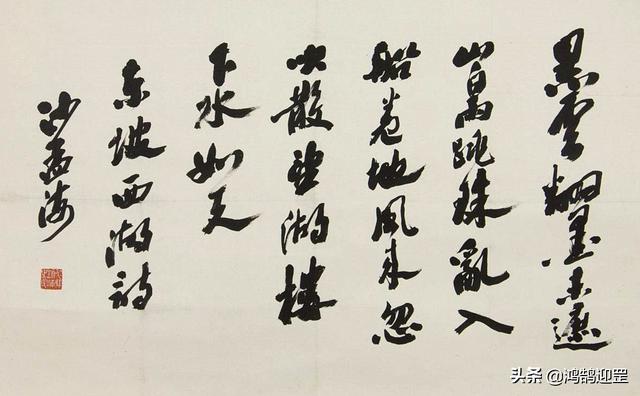 黑雲翻墨未遮
山白雨跳珠亂入
船卷地風來忽
吹散望湖樓
下水如天
東坡西湖詩
沙孟海
头条 @鸿鹄迎罡